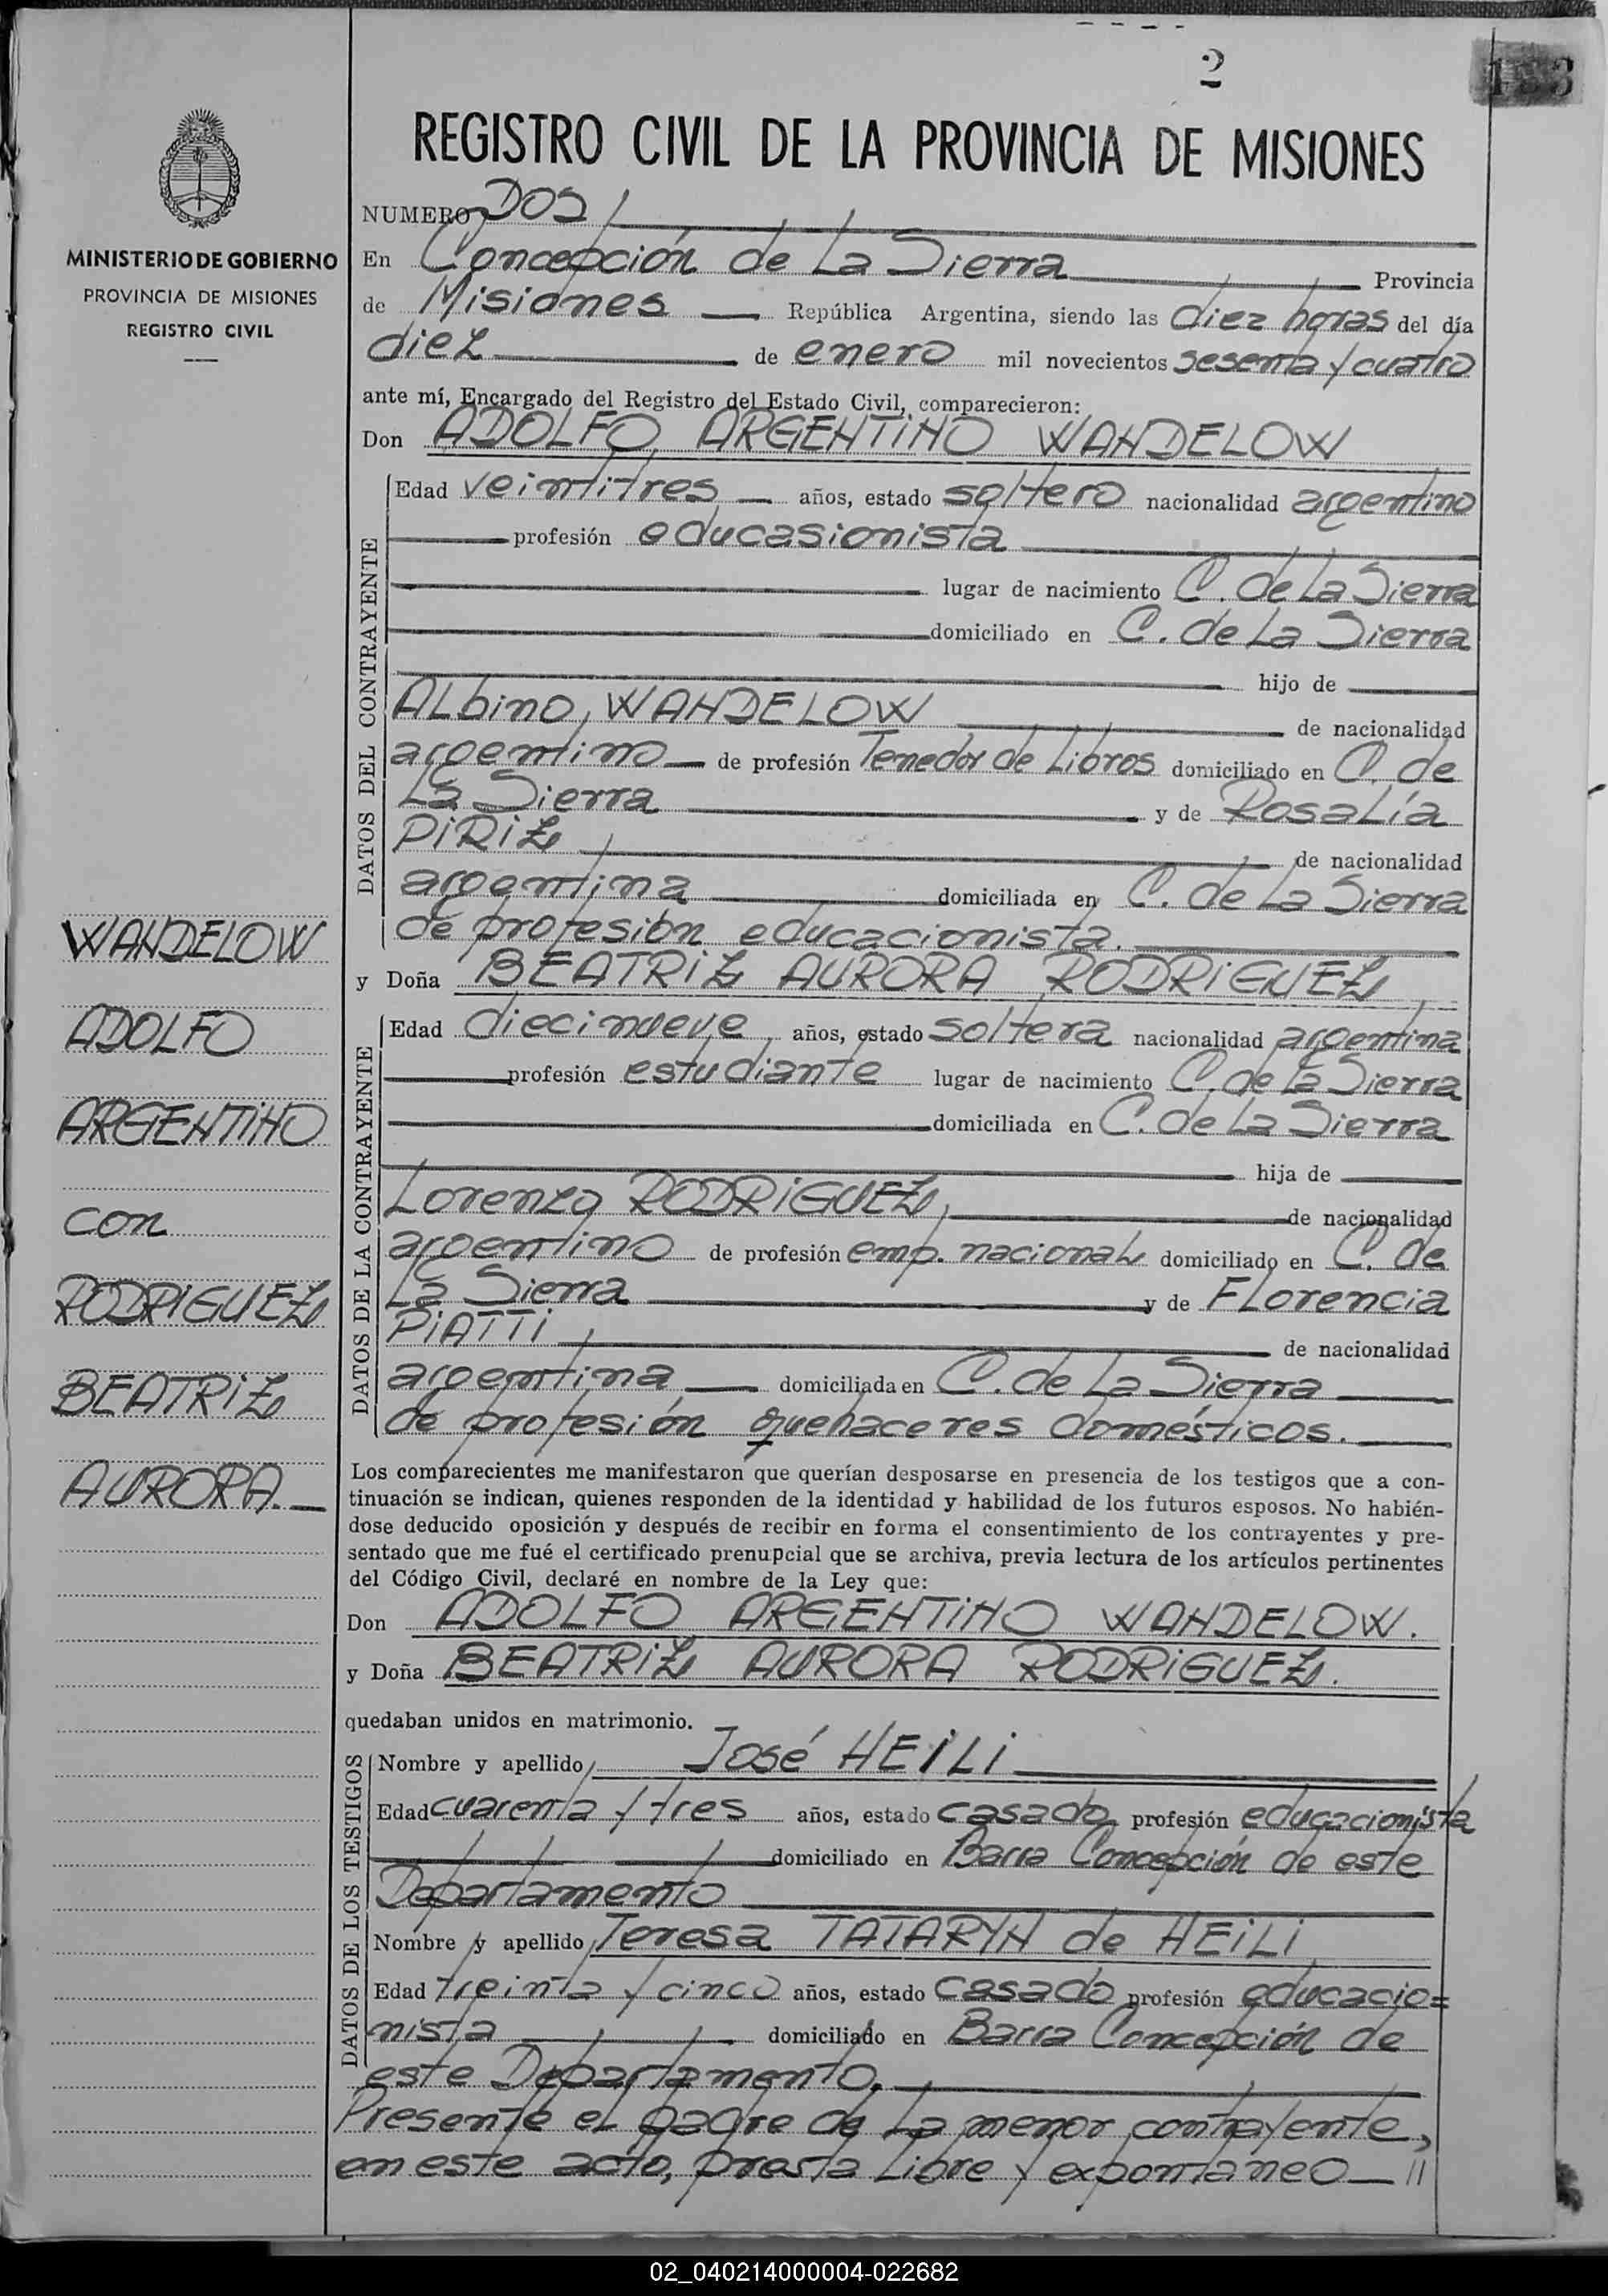 2
REGISTRO CIVIL DE LA PROVINCIA DE MISIONES
MINISTERIO DE GOBIERNO
PROVINCIA DE MISIONES
REGISTRO CIVIL
WANDELOW
ADOLFO
ARGENTINO
con
RODRIGUEZ
BEATRIZ
AURORA.
NUMERO DOS
En Concepción de La Sierra Provincia
de Misiones República Argentina, siendo las diez horas del día
diez de enero mil novecientos sesenta y cuatro
ante mí, Encargado del Registro del Estado Civil, comparecieron:
Don ADOLFO ARGENTINO WANDELOW
DATOS DEL CONTRAYENTE
Edad veintitres años, estado soltero nacionalidad argentino
profesión educasionista
lugar de nacimiento C. de La Sierra
domiciliado en C. de La Sierra
hijo de
Albino WANDELOW de nacionalidad
argentino de profesión Tenedor de Libros domiciliado en C. de
La Sierra y de Rosalía
PIRIZ de nacionalidad
argentina domiciliada en C. de La Sierra
de profesión educacionista.
y Doña BEATRIZ AURORA RODRIGUEZ
DATOS DE LA CONTRAYENTE
Edad diecinueve años, estado soltera nacionalidad argentina
profesión estudiante lugar de nacimiento C. de La Sierra
domiciliada en C. de La Sierra
hija de
Lorenzo RODRIGUEZ, de nacionalidad
argentino de profesión emp. nacional domiciliado en C. de
La Sierra y de Florencia
PIATTI de nacionalidad
argentina domiciliada en C. de La Sierra
de profesión quehaceres domésticos.
Los comparecientes me manifestaron que querían desposarse en presencia de los testigos que a con-
tinuación se indican, quienes responden de la identidad y habilidad de los futuros esposos. No habién-
dose deducido oposición y después de recibir en forma el consentimiento de los contrayentes y pre-
sentado que me fué el certificado prenupcial que se archiva, previa lectura de los artículos pertinentes
del Código Civil, declaré en nombre de la Ley que:
Don ADOLFO ARGENTINO WANDELOW.
y Doña BEATRIZ AURORA RODRIGUEZ.
quedaban unidos en matrimonio.
DATOS DE LOS TESTIGOS
Nombre y apellido José HEILI
Edad cuarenta y tres años, estado casado profesión educacionista
domiciliado en Barra Concepción de este
Departamento
Nombre y apellido Teresa TATARYN de HEILI
Edad treinta y cinco años, estado casado profesión educacio=
nista domiciliado en Barra Concepción de
este Departamento.
Presente el padre de La menor contrayente,
en este acto, presta Libre y expontáneo //
02_040214000004-022682